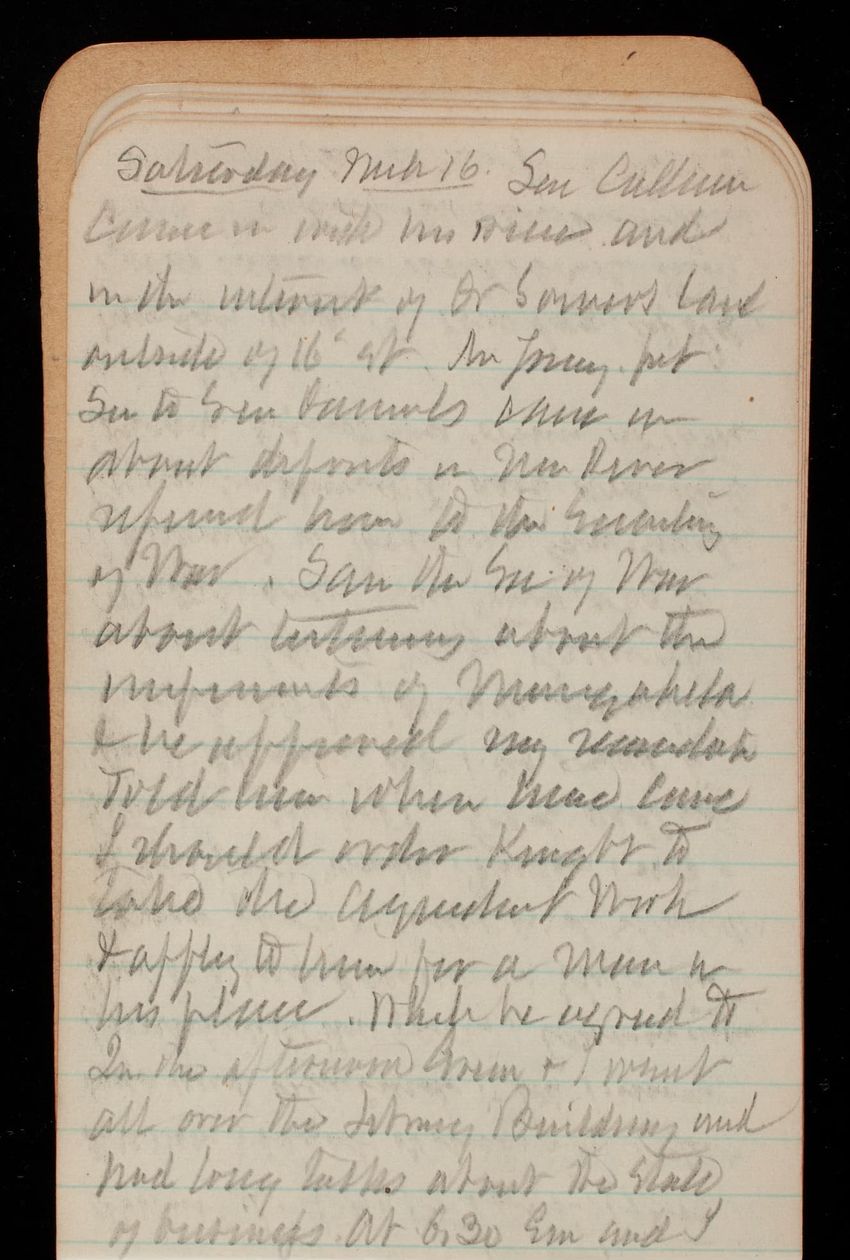 Saturday Mch 16. Sen Cullum
Came in with his niece and
in the interest of Dr Sowers land
outside of 16" st.
Gen Daniels came in
about deposits in New River
referred him to the Secretary
of War. Saw the Sec of War
about about the
of Monongahela
& he approved my
Told him when came
I should order Knight to
take the Aqueduct Work
& apply to him for a man in
his place. Which he agreed to
In the afternoon Green & I went
all over the Library Building and
had long talks about the State
of business. At 6.30 Em and I